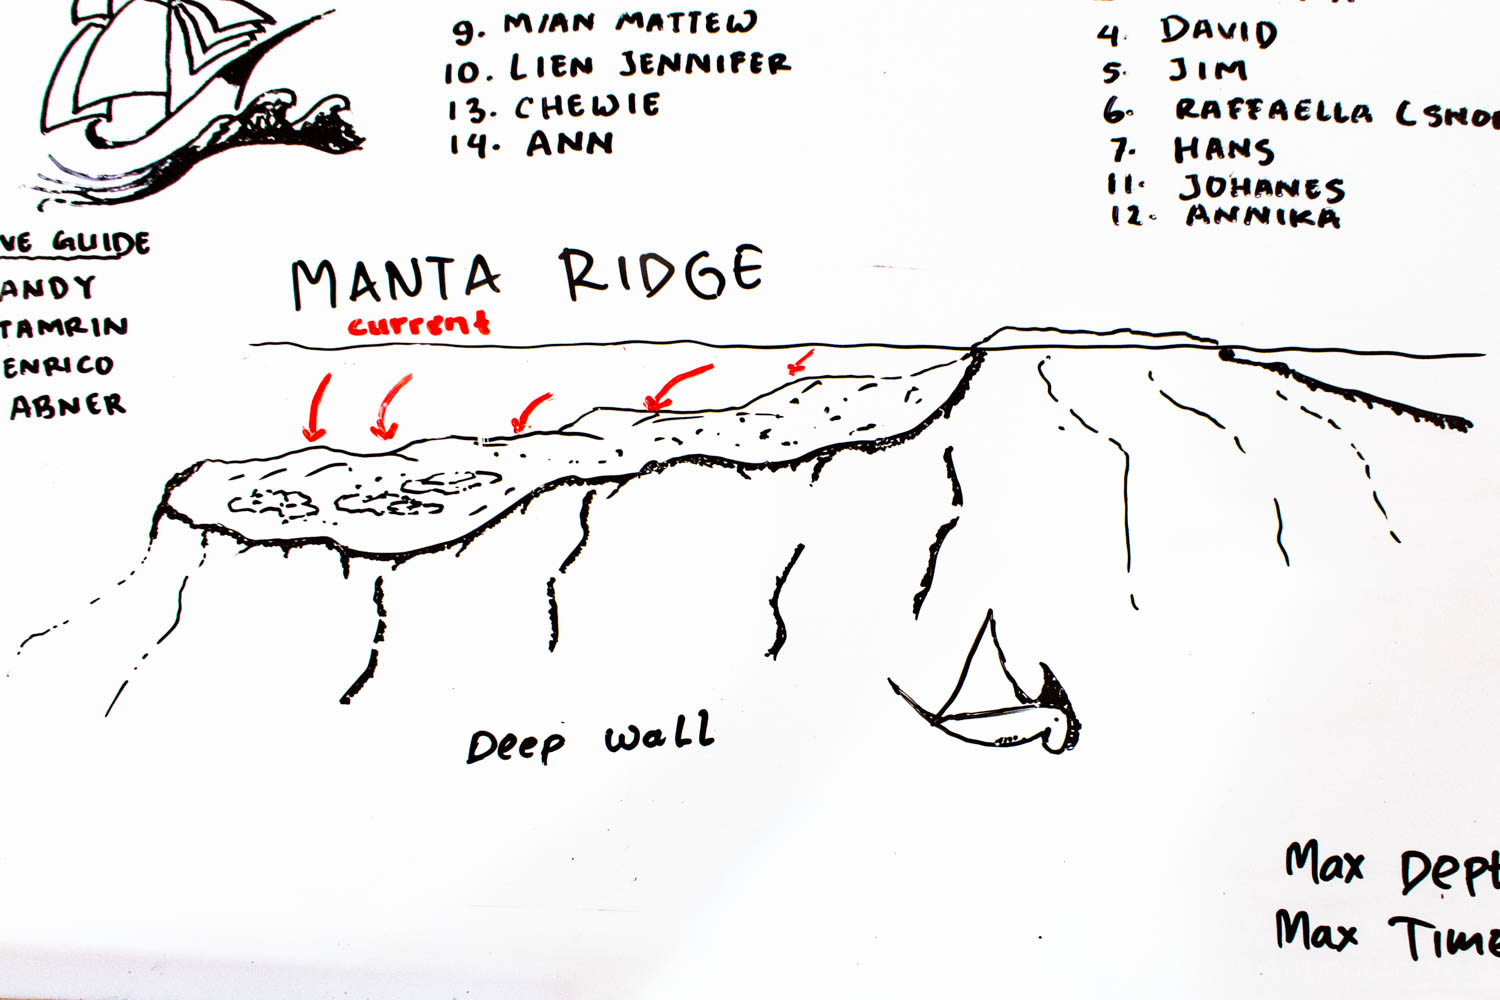 9. MIAN MATTEW
10. LIEN JENNIFER
13. CHEWIE
14. ANN
4. DAVID
5. JIM
6. RAFFAELLA (SNO
7. HANS
11. JOHANES
12. ANNIKA
VE GUIDE
ANDY
TAMRIN
ENRICO
ABNER
MANTA RIDGE
current
Deep wall
Max Dept
Max Time